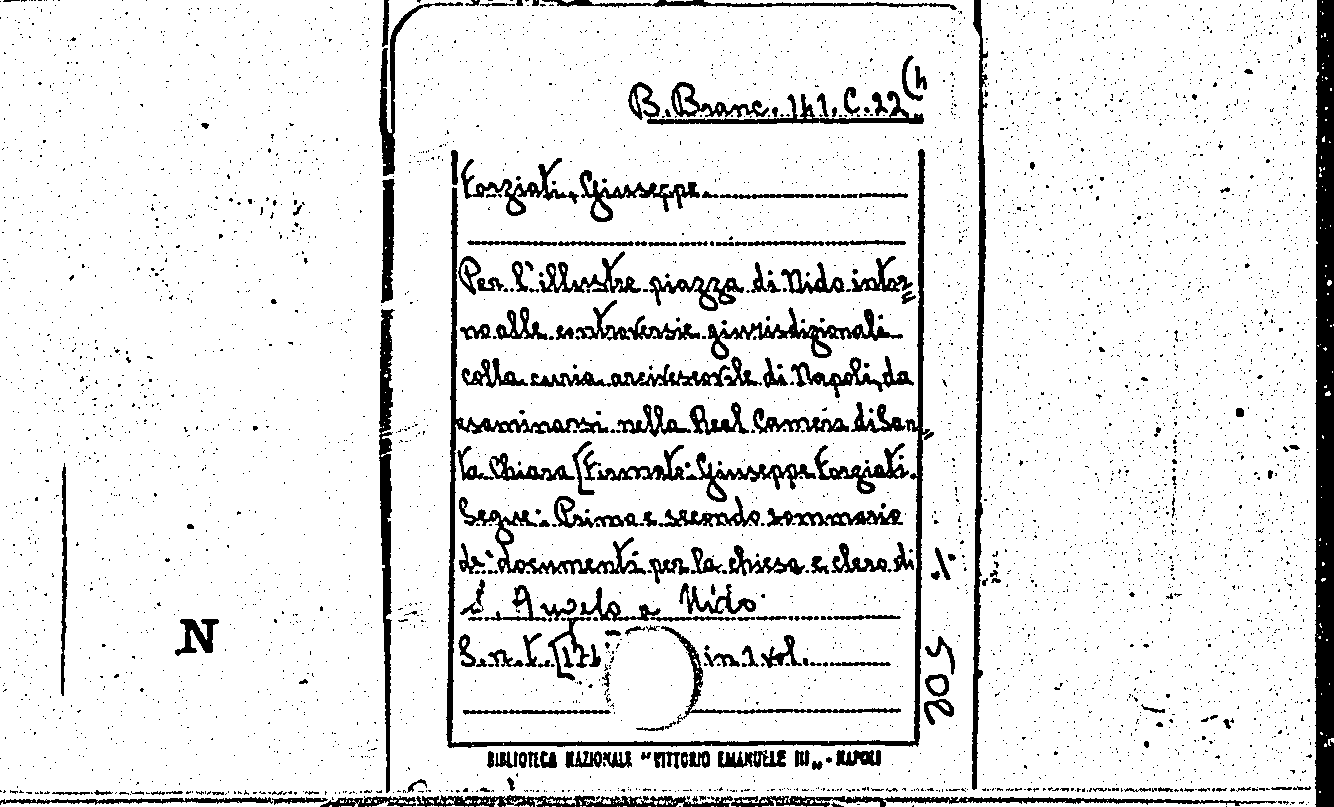 B. Branc. 141. C. 22 (4
Forziati, Giuseppe.
Per l'illustre piazza di Nido intor=
no alle controversie giurisdizionali
colla curia arcivescovile di Napoli, da
esaminarsi nella Real Camera di San=
ta Chiara [Firmato: Giuseppe Forziati.
Segue: Primo e secondo sommario
de' documenti per la chiesa e clero di
S. Angelo a Nido.
S. n. t. [17 in 1 vol.
BIBLIOTECA NAZIONALE "VITTORIO EMANUELE III„ - NAPOLI
N
./.